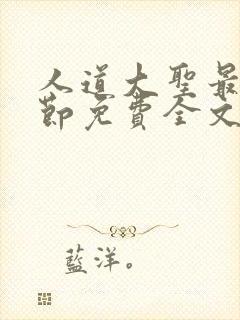 人道大聖最
節免費全文
藍洋。